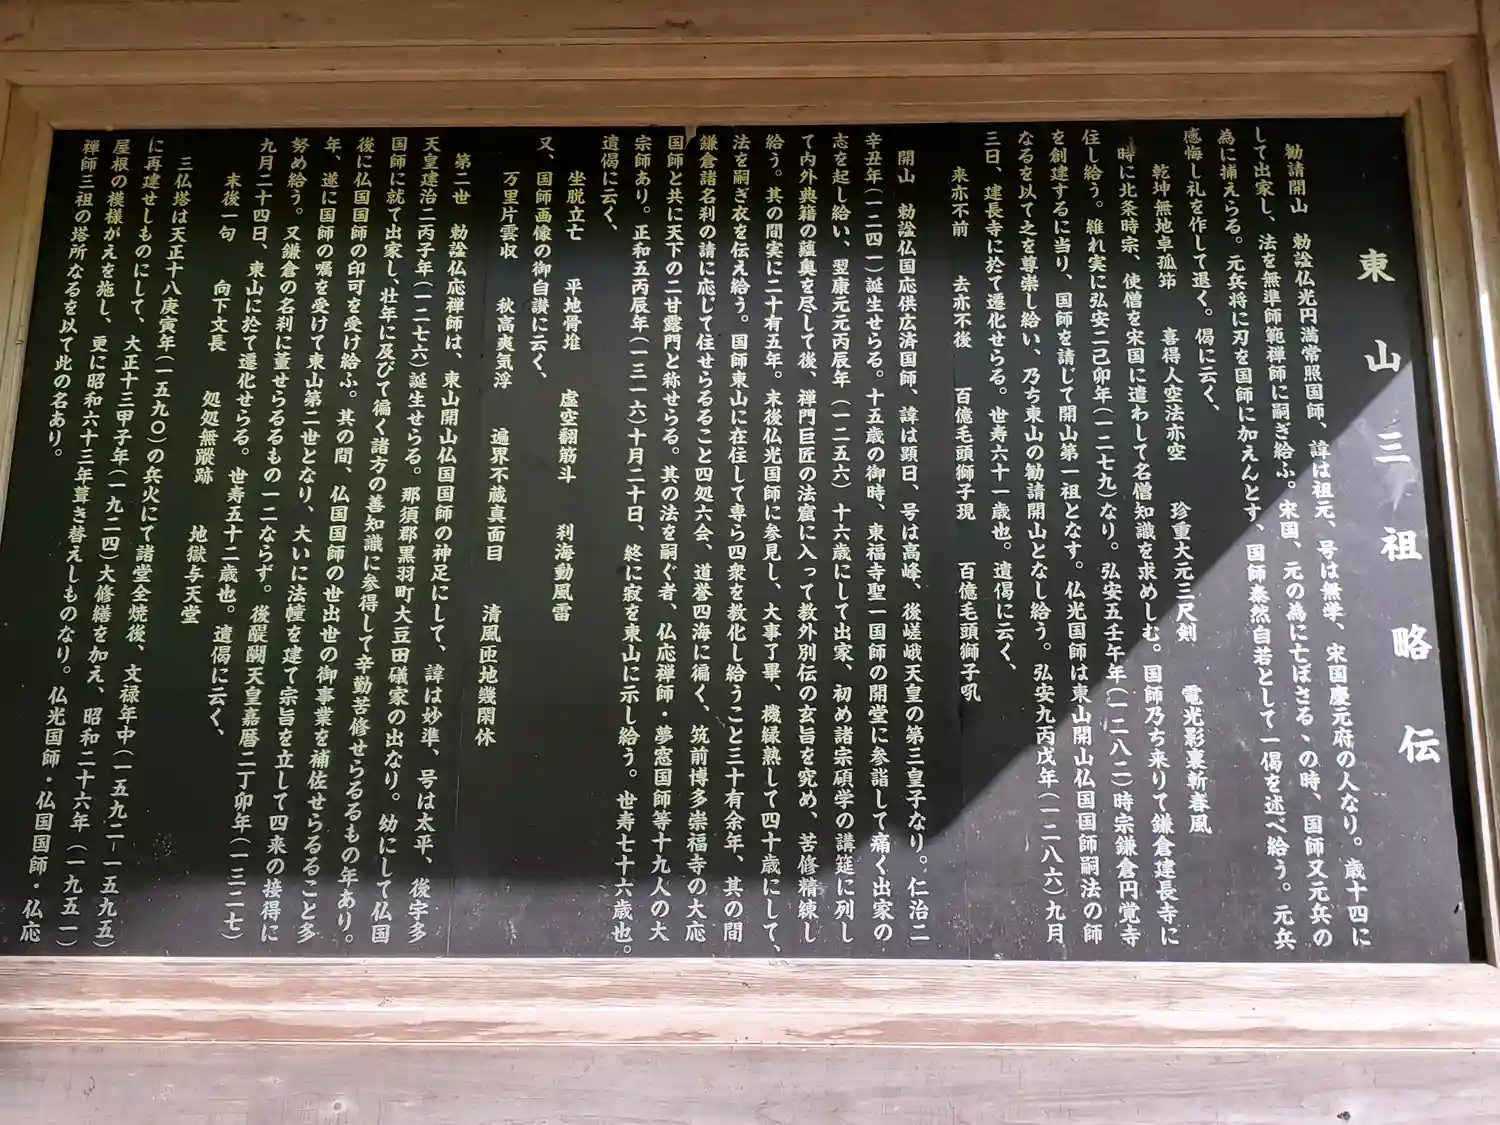 東山三祖略伝
勧請開山　勅諡仏光円満常照国師、諱は祖元、号は無学、宋国慶元府の人なり。歳十四に
して出家し、法を無準師範禅師に嗣ぎ給ふ。宋国、元の為に亡ぼさるゝの時、国師又元兵の
為に捕えらる。元兵将に刃を国師に加えんとす、国師泰然自若として一偈を述べ給う。元兵
感悔し礼を作して退く。偈に云く、
乾坤無地卓孤筇　喜得人空法亦空　珍重大元三尺剣　電光影裏斬春風
時に北条時宗、使僧を宋国に遣わして名僧知識を求めしむ。国師乃ち来りて鎌倉建長寺に
住し給う。維れ実に弘安二己卯年（一二七九）なり。弘安五壬午年（一二八二）時宗鎌倉円覚寺
を創建するに当り、国師を請じて開山第一祖となす。仏光国師は東山開山仏国国師嗣法の師
なるを以て之を尊崇し給い、乃ち東山の勧請開山となし給う。弘安九丙戊年（一二八六）九月
三日、建長寺に於て遷化せらる。世寿六十一歳也。遺偈に云く、
来亦不前　去亦不後　百億毛頭獅子現　百億毛頭獅子吼
開山　勅諡仏国応供広済国師、諱は顕日、号は高峰、後嵯峨天皇の第三皇子なり。仁治二
辛丑年（一二四一）誕生せらる。十五歳の御時、東福寺聖一国師の開堂に参詣して痛く出家の
志を起し給い、翌康元元丙辰年（一二五六）十六歳にして出家、初め諸宗碩学の講筵に列し
て内外典籍の蘊奥を尽して後、禅門巨匠の法窟に入って教外別伝の玄旨を究め、苦修精練し
給う。其の間実に二十有五年。末後仏光国師に参見し、大事了畢、機縁熟して四十歳にして、
法を嗣ぎ衣を伝え給う。国師東山に在住して専ら四衆を教化し給うこと三十有余年、其の間
鎌倉諸名刹の請に応じて住せらるること四処六会、道誉四海に徧く、筑前博多崇福寺の大応
国師と共に天下の二甘露門と称せらる。其の法を嗣ぐ者、仏応禅師・夢窓国師等十九人の大
宗師あり。正和五丙辰年（一三一六）十月二十日、終に寂を東山に示し給う。世寿七十六歳也。
遺偈に云く、
坐脱立亡　平地骨堆　虚空翻筋斗　刹海動風雷
又、国師画像の御自讃に云く、
万里片雲収　秋高爽気浮　遍界不蔵真面目　清風匝地幾閑休
第二世　勅諡仏応禅師は、東山開山仏国国師の神足にして、諱は妙準、号は太平、後宇多
天皇建治二丙子年（一二七六）誕生せらる。那須郡黒羽町大豆田礒家の出なり。幼にして仏国
国師に就て出家し、壮年に及びて徧く諸方の善知識に参得して辛勤苦修せらるるもの年あり。
後に仏国国師の印可を受け給ふ。其の間、仏国国師の世出世の御事業を補佐せらるること多
年、遂に国師の嘱を受けて東山第二世となり、大いに法幢を建て宗旨を立して四来の接得に
努め給う。又鎌倉の名刹に董せらるるもの一二ならず。後醍醐天皇嘉暦二丁卯年（一三二七）
九月二十四日、東山に於て遷化せらる。世寿五十二歳也。遺偈に云く、
末後一句　向下文長　処処無蹤跡　地獄与天堂
三仏塔は天正十八庚寅年（一五九〇）の兵火にて諸堂全焼後、文禄年中（一五九二－一五九五）
に再建せしものにして、大正十三甲子年（一九二四）大修繕を加え、昭和二十六年（一九五一）
屋根の模様がえを施し、更に昭和六十三年葺き替えしものなり。仏光国師・仏国国師・仏応
禅師三祖の塔所なるを以て此の名あり。